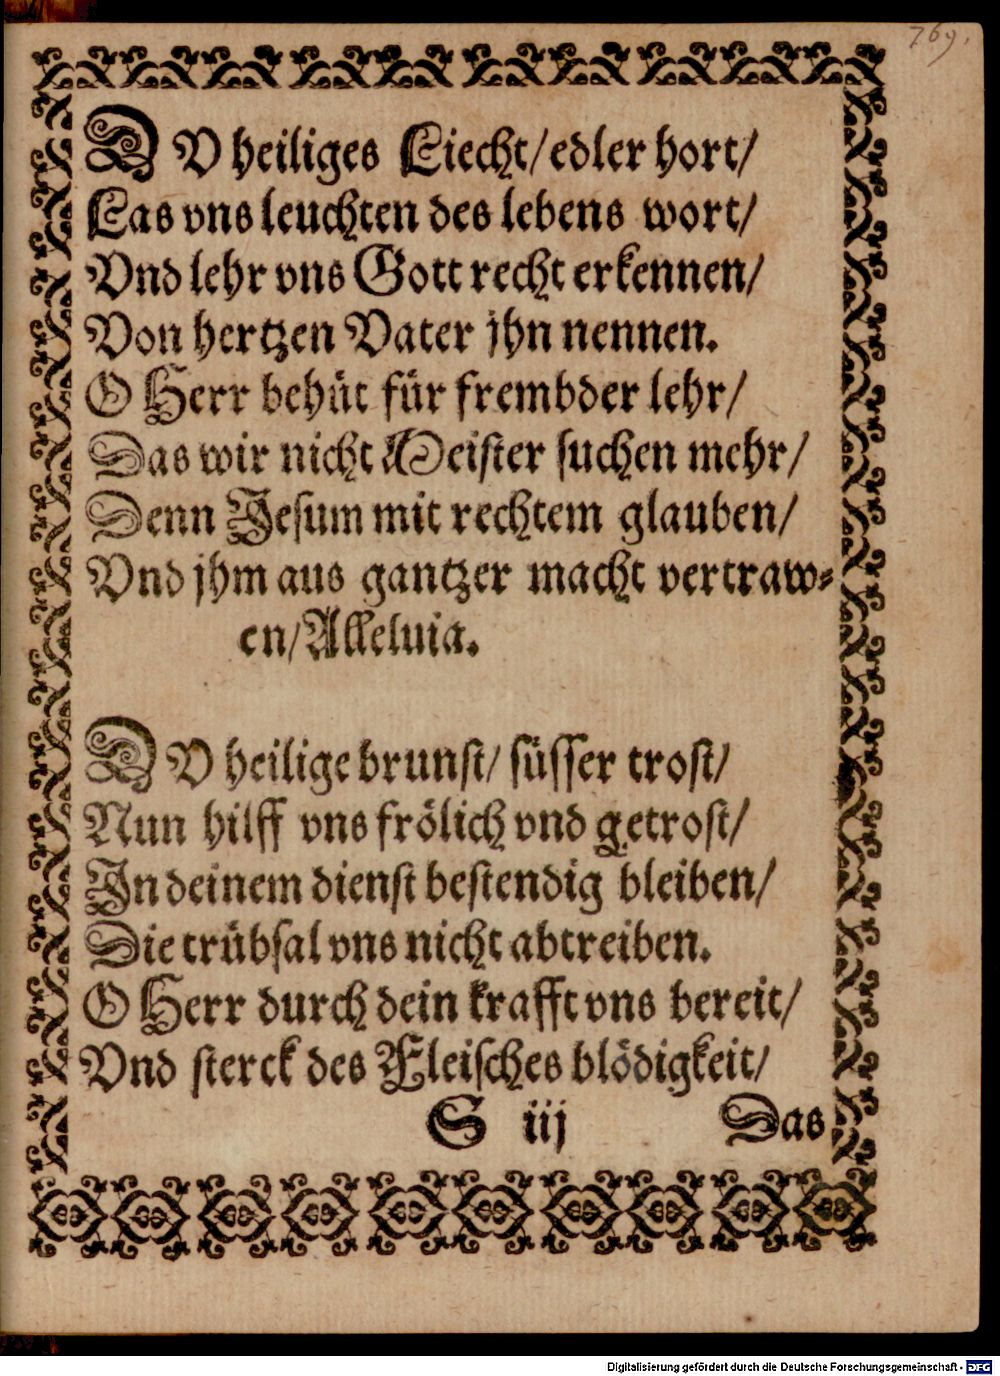 769.
DV heiliges Liecht/edler hort/
Las vns leuchten des lebens wort/
Vnd lehr vns Gott recht erkennen/
Von hertzen Vater jhn nennen.
O Herr behüt für frembder lehr/
Das wir nicht Meister suchen mehr/
Denn Jesum mit rechtem glauben/
Vnd jhm aus gantzer macht vertraw⸗
en/Alleluia.
DV heilige brunst/ süsser trost/
Nun hilff vns frölich vnd getrost/
In deinem dienst bestendig bleiben/
Die trübsal vns nicht abtreiben.
O Herr durch dein krafft vns bereit/
Vnd sterck des Fleisches blödigkeit/
S iij Das
Digitalisierung gefördert durch die Deutsche Forschungsgemeinschaft - DFG